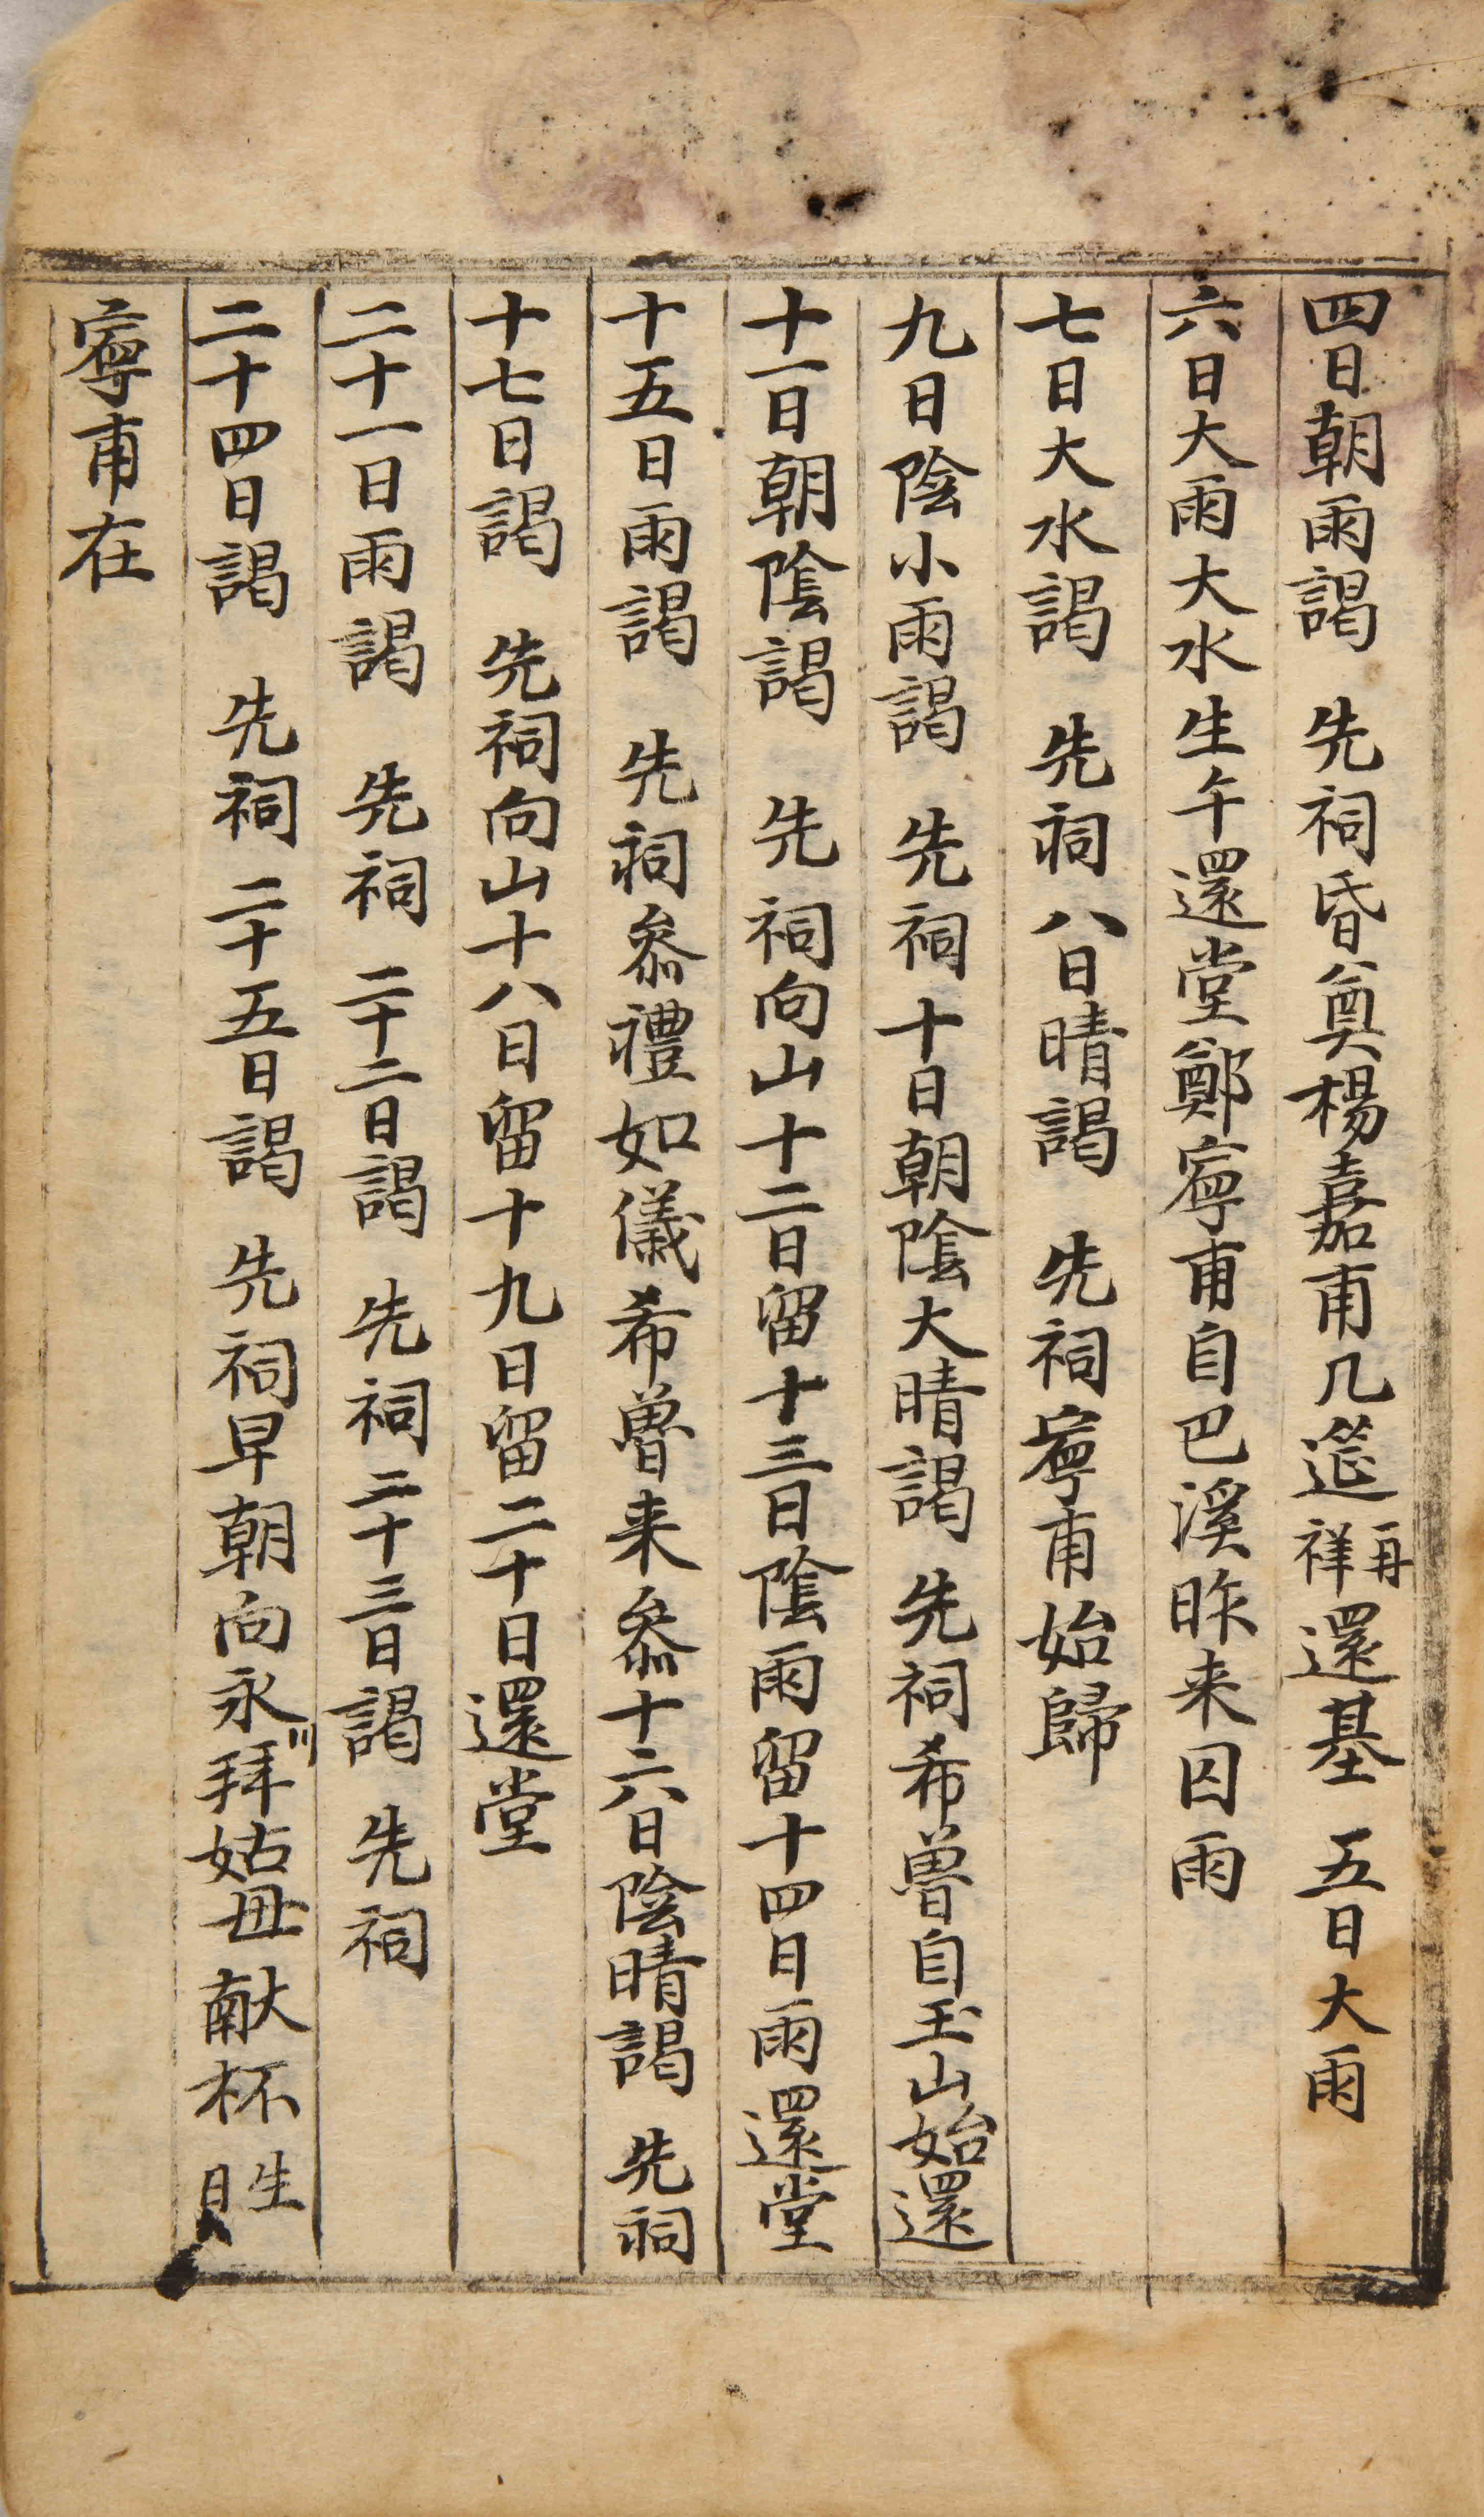 四日朝雨謁 先祠昏奠楊嘉甫几筵再祥還基 五日大雨
六日大雨大水生午還堂鄭寧甫自巴溪昨来因雨
七日大水謁 先祠八日晴謁 先祠寧甫始歸
九日陰小雨謁 先祠十日朝陰大晴謁 先祠希曾自玉山始還
十一日朝陰謁 先祠向山十二日留十三日陰雨留十四日雨還堂
十五日雨謁 先祠叅禮如儀希曾来叅十六日陰晴謁 先祠
十七日謁 先祠向山十八日留十九日留二十日還堂
二十一日雨謁 先祠二十二日謁 先祠二十三日謁 先祠
二十四日謁 先祠二十五日謁 先祠早朝向永川拜姑母献杯生
寧甫在